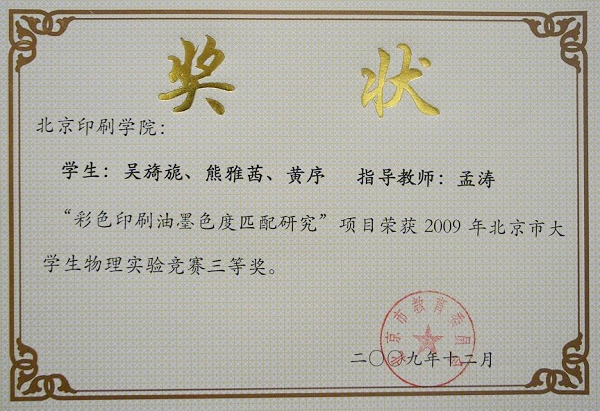 奖状
北京印刷学院：
学生：吴旖旎、熊雅茜、黄序 指导教师：孟涛
“彩色印刷油墨色度匹配研究”项目荣获 2009 年北京市大
学生物理实验竞赛三等奖。
北京市教育委员会
二〇〇九年十二月